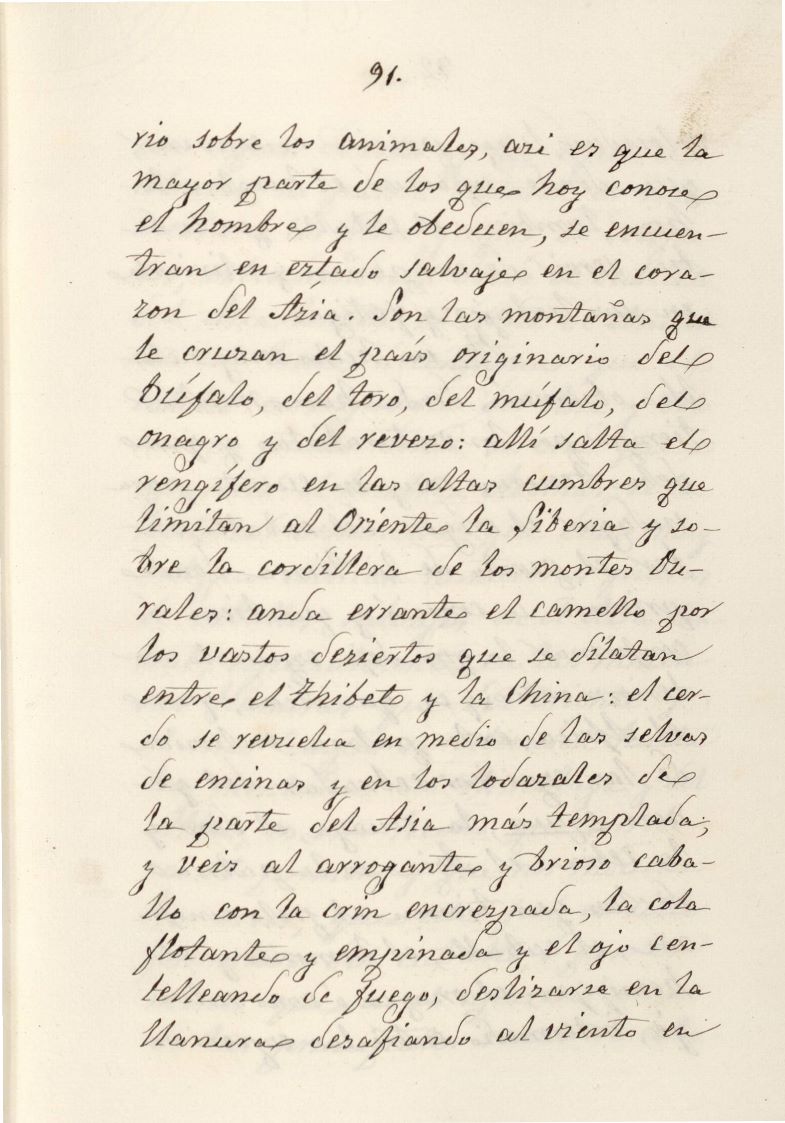 91.
rio sobre los animales, asi es que la
mayor parte de los que hoy conoce
el hombre y le obedecen, se encuen-
tran en estado salvaje en el cora-
zon del Asia. Son las montañas que
le cruzan el país originario del
búfalo, del toro, del múfalo, del
onagro y del revezo: allí salta el
rengífero en las altas cumbres que
limitan al Oriente la Siberia y so-
bre la cordillera de los montes Ou-
rales: anda errante el camello por
los vastos deziertos que se dilatan
entre el Thibet y la China: el cer-
do se revuelca en medio de las selvas
de encinas y en los lodazales de
la parte del Asia más templada;
y veis al arrogante y brioso caba-
llo con la crin encrezpada, la cola
flotante y empinada y el ojo cen-
telleando de fuego, deslizarse en la
llanura desafiando al viento en